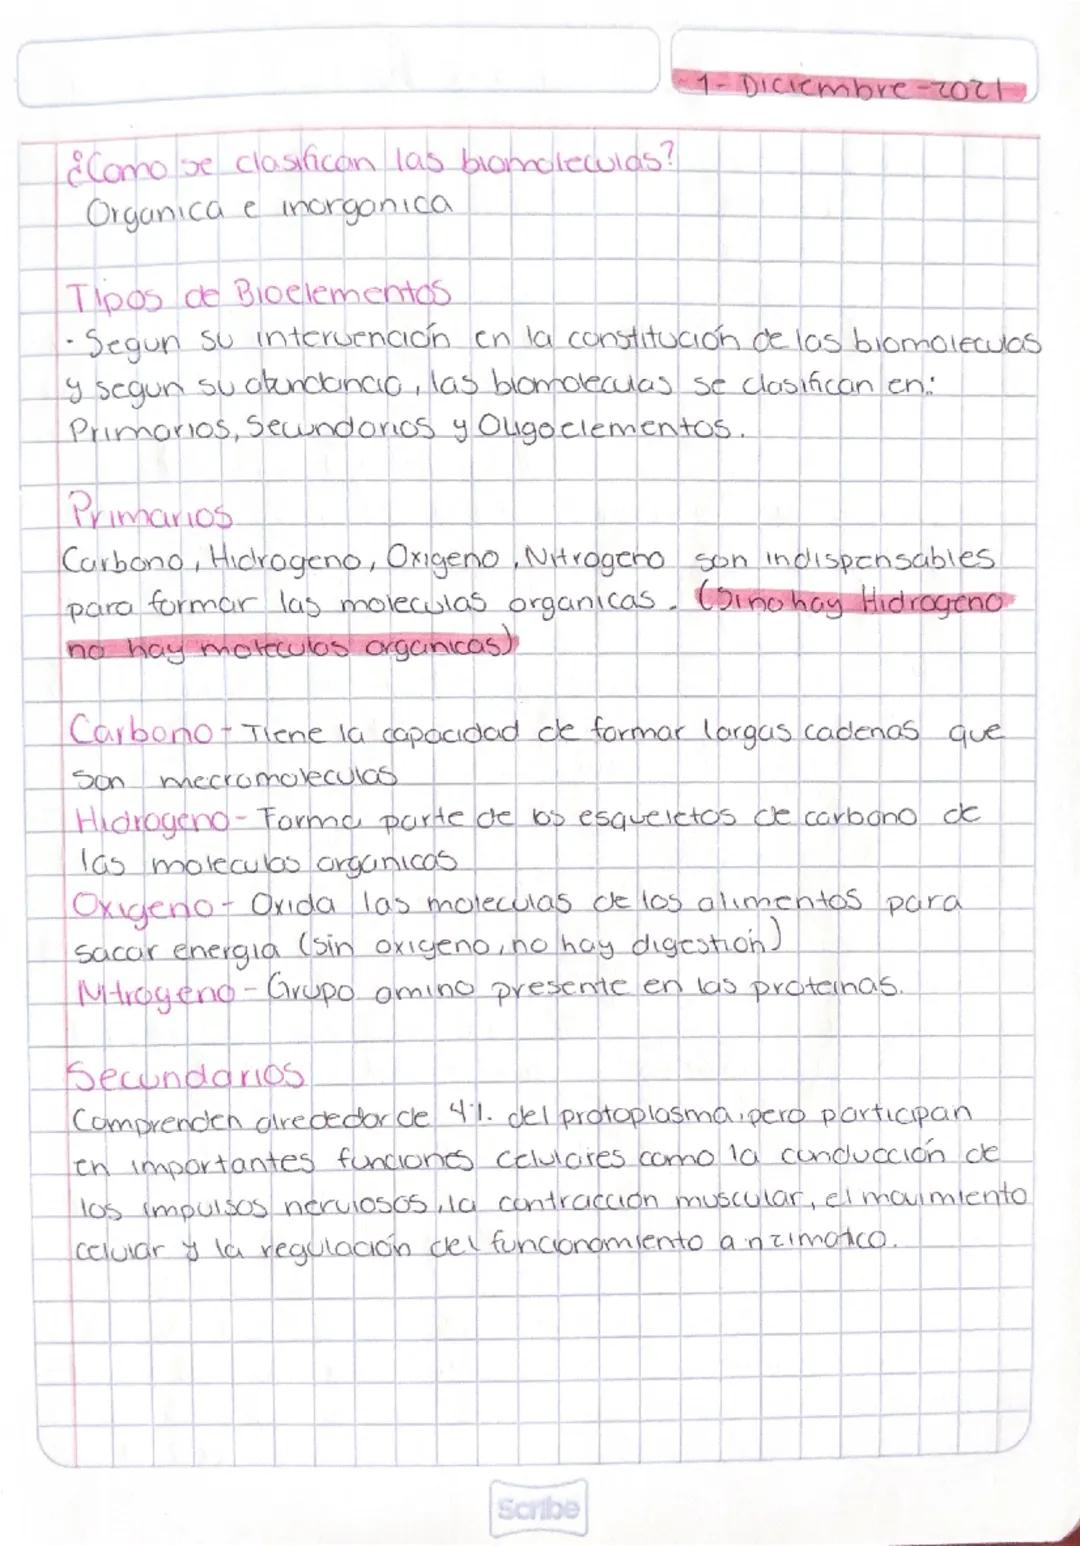 1- Diciembre-2021
¿Como se clasifican las biomoleculas?
Organica e inorganica
Tipos de Bioelementos
· Segun su intervención en la constitución de las biomoleculas
y segun su abundancia, las biomoleculas se clasifican en:
Primarios, Secundarios y Oligoelementos.
Primarios
Carbono, Hidrogeno, Oxigeno, Nitrogeno son indispensables
para formar las moleculas organicas. (Si no hay Hidrogeno
no hay moleculas organicas)
Carbono- Tiene la capacidad de formar largas cadenas que
son mecromoleculas
Hidrogeno- Forma parte de los esqueletos de carbono de
las moleculas organicas
Oxigeno- Oxida las moleculas de los alimentos para
sacar energia (sin oxigeno, no hay digestión)
Nitrogeno- Grupo amino presente en las proteinas.
Secundarios
Comprenden alrededor de 4%. del protoplasma, pero participan
en importantes funciones celulares como la conducción de
los impulsos nerviosos, la contracción muscular, el movimiento
celular y la regulación del funcionamiento anzimatico.
Scribe